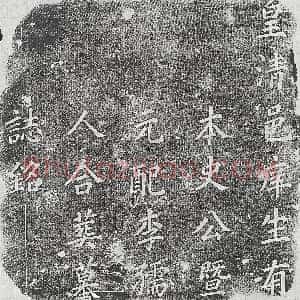 皇清邑庠生有
本史公暨
元配李孺
人合葬墓
誌銘